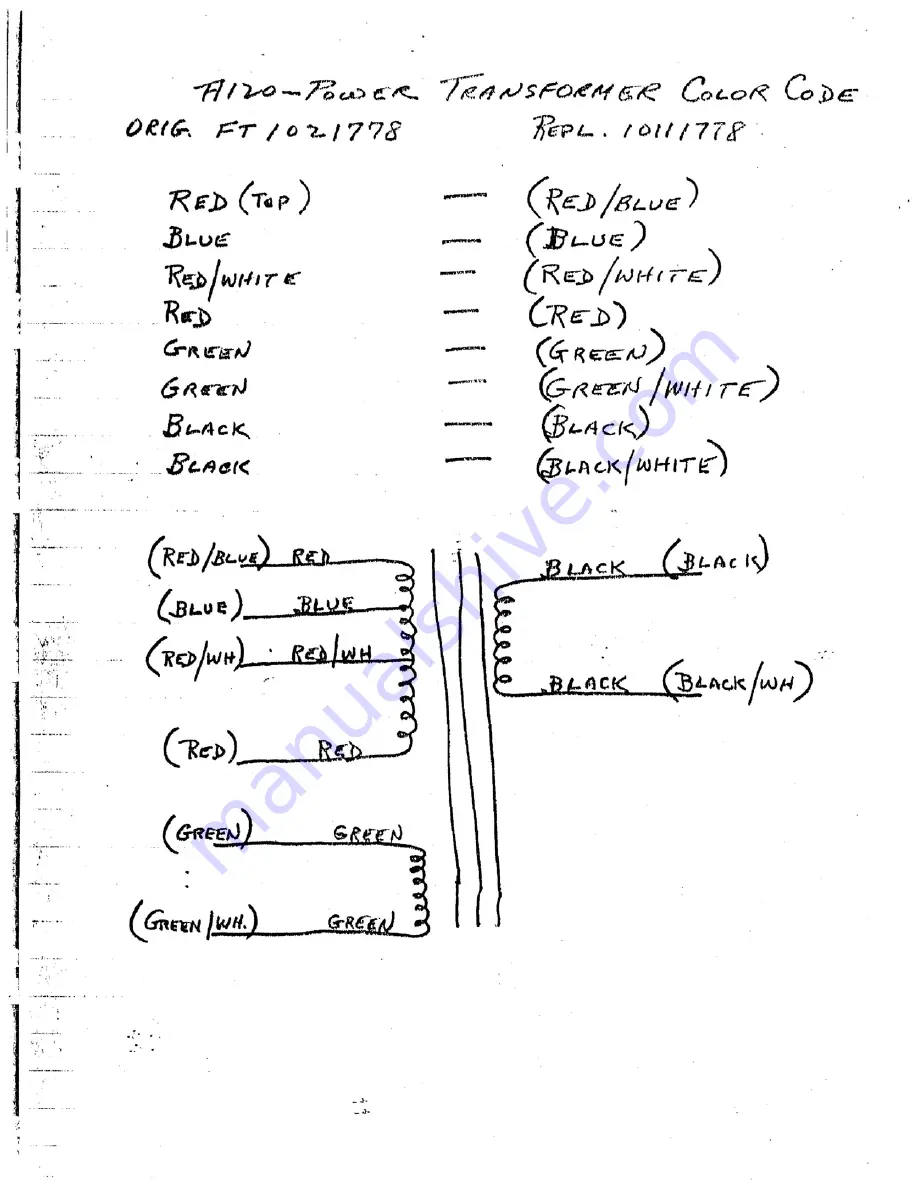 A120-POWER TRANSFORMER COLOR CODE
ORIG. FT1021778 REPL. 10111778
RED (TOP) — (RED/BLUE)
BLUE — (BLUE)
RED/WHITE — (RED/WHITE)
RED — (RED)
GREEN — (GREEN)
GREEN — (GREEN/WHITE)
BLACK — (BLACK)
BLACK — (BLACK/WHITE)
(RED/BLUE) RED BLACK (BLACK)
(BLUE) BLUE
(RED/WH) RED/WH BLACK (BLACK/WH)
(RED) RED
(GREEN) GREEN
(GREEN/WH.) GREEN
manualshive.com